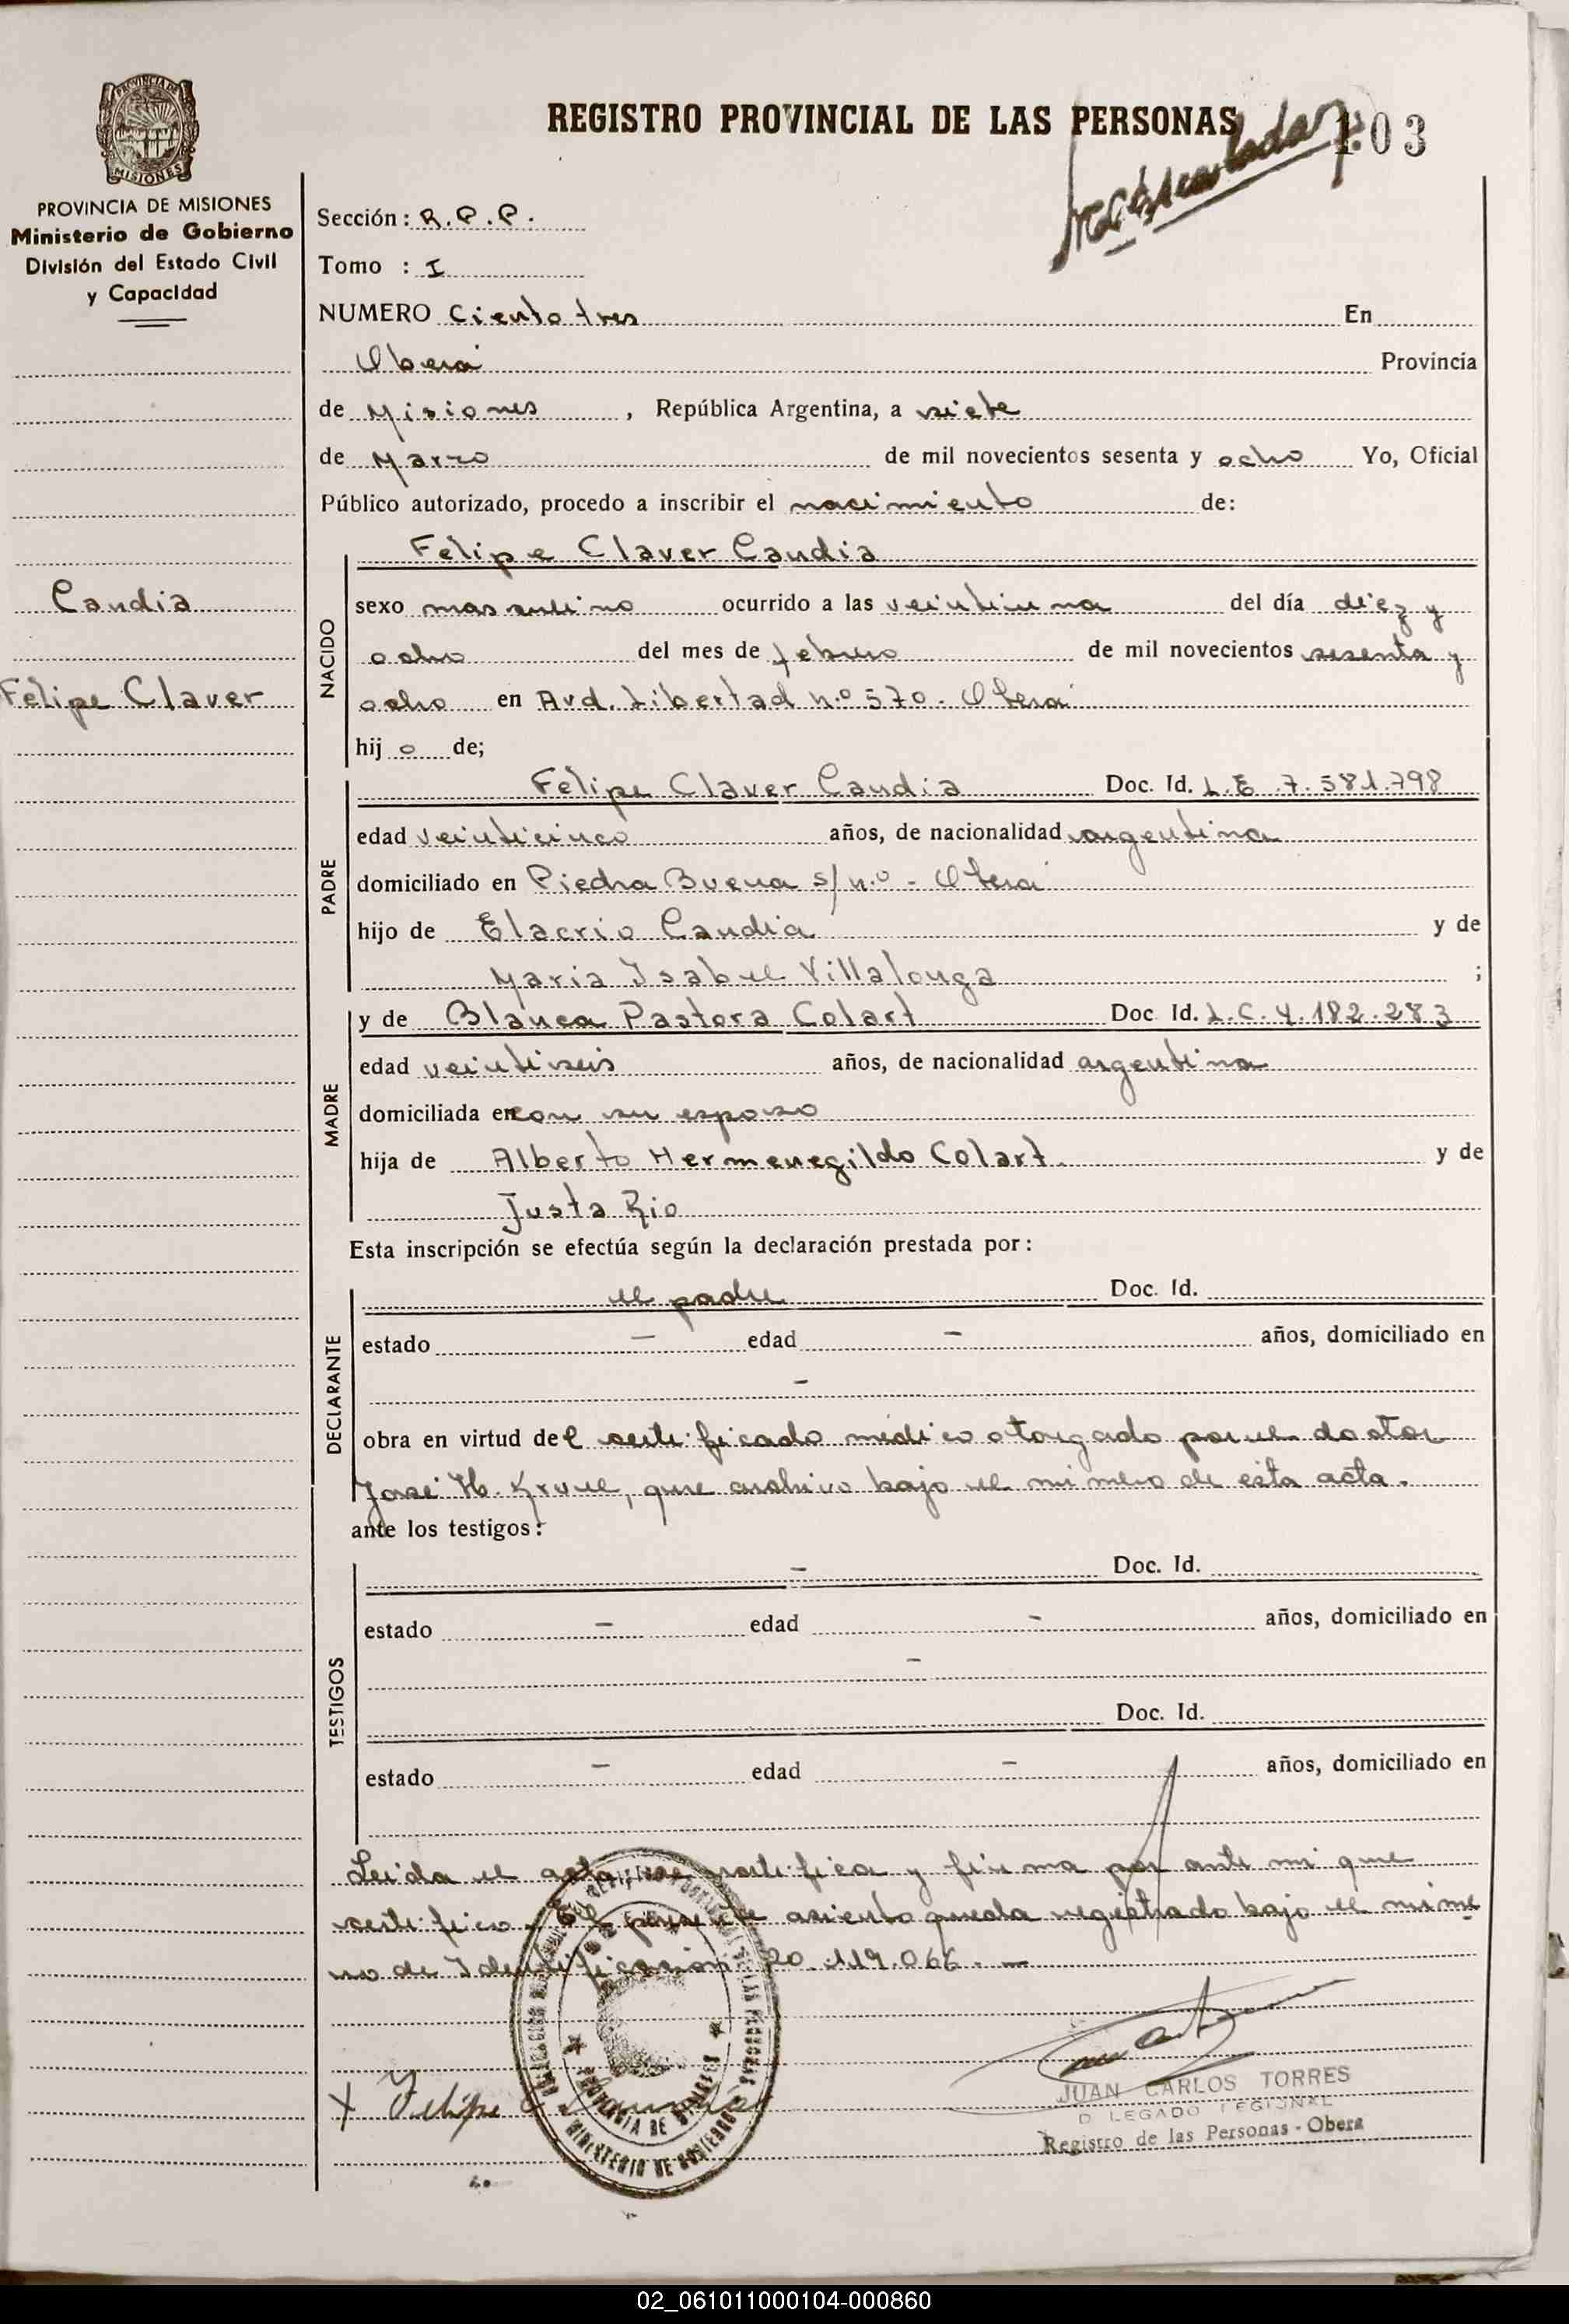 REGISTRO PROVINCIAL DE LAS PERSONAS
103
MISIONES
PROVINCIA DE MISIONES
Ministerio de Gobierno
División del Estado Civil
y Capacidad
Candia
Felipe Claver
Sección: R.P.P.
Tomo : I
NUMERO Ciento tres En
Oberá Provincia
de Misiones , República Argentina, a siete
de Marzo de mil novecientos sesenta y ocho Yo, Oficial
Público autorizado, procedo a inscribir el nacimiento de:
Felipe Claver Candia
NACIDO
sexo masculino ocurrido a las veintiuna del día diez y
ocho del mes de febrero de mil novecientos sesenta y
ocho en Avd. Libertad n.º 570. Oberá
hij o de;
PADRE
Felipe Claver Candia Doc. Id. L.E 7.581.798
edad veinticinco años, de nacionalidad argentina
domiciliado en Piedra Buena s/n.º - Oberá
hijo de Elacrio Candia y de
Maria Isabel Villalonga ;
MADRE
y de Blanca Pastora Colart Doc Id. L.C. 4.182.283
edad veintiseis años, de nacionalidad argentina
domiciliada en con su esposo
hija de Alberto Hermenegildo Colart. y de
Justa Rio
Esta inscripción se efectúa según la declaración prestada por:
DECLARANTE
el padre Doc. Id.
estado - edad - años, domiciliado en
-
obra en virtud de l certificado médico otorgado por el doctor
José H. , que archivo bajo el número de esta acta.
ante los testigos:
TESTIGOS
- Doc. Id.
estado - edad - años, domiciliado en
-
Doc. Id.
estado - edad - años, domiciliado en
Leida el acta, se ratifica y firma por ante mi que
certifico. El presente asiento queda registrado bajo el núme
ro de Identificación 20.119.066. -
X Felipe C. Candia
JUAN CARLOS TORRES
D LEGADO REGIONAL
Registro de las Personas - Obera
PROVINCIA DE MISIONES
MINISTERIO DE GOBIERNO
02_061011000104-000860